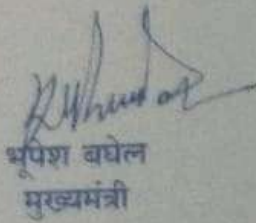 भूपेश बघेल
मुख्यमंत्री